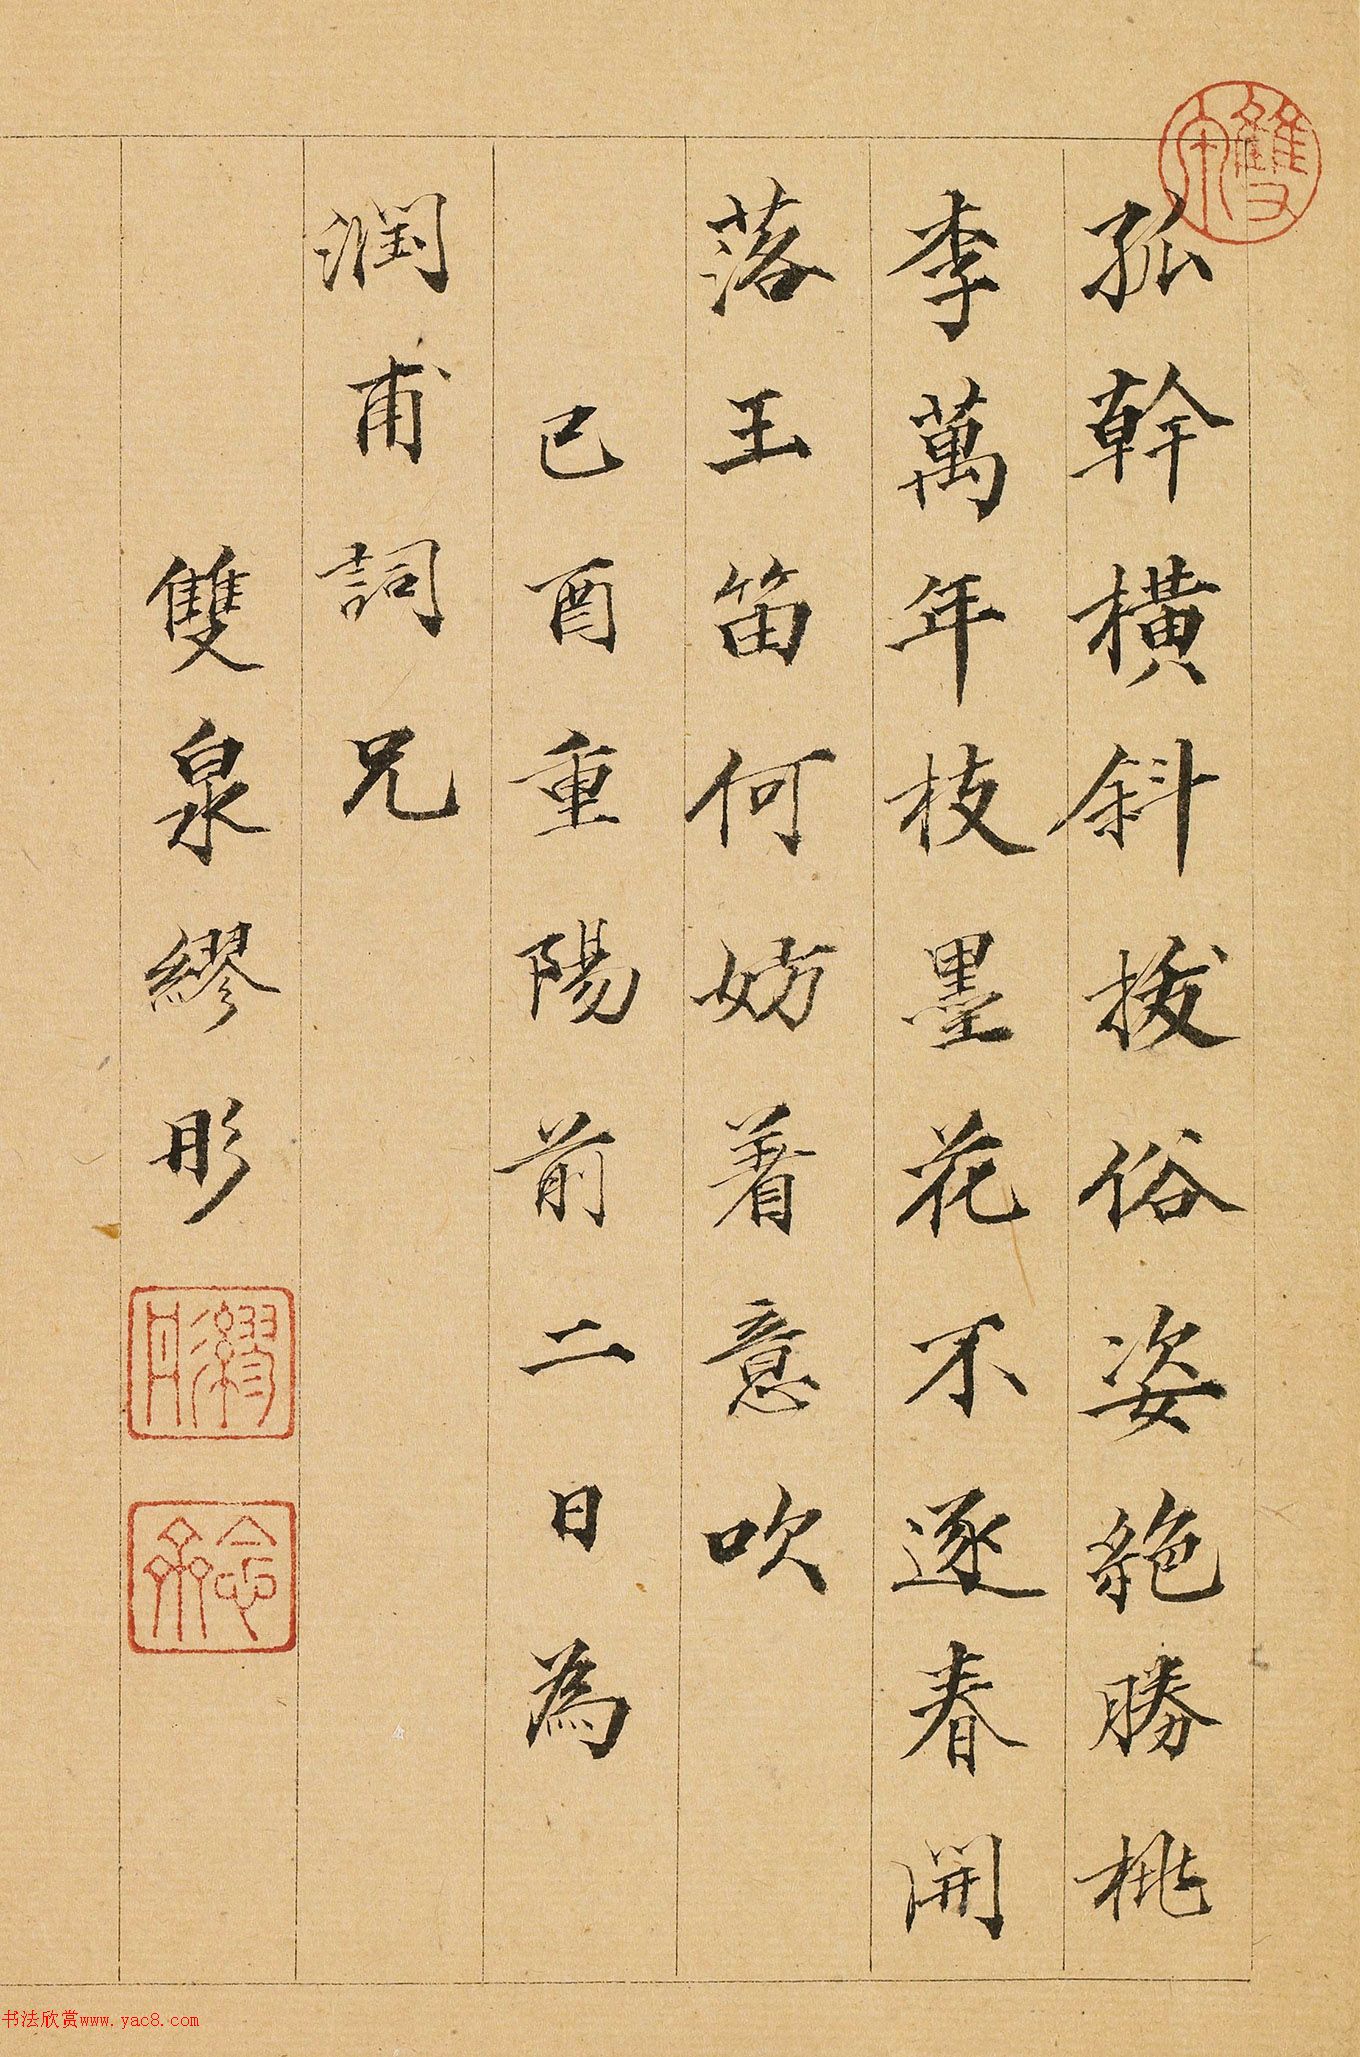 孤幹橫斜拔俗姿絕勝桃
李萬年枝墨花不逐春開
落王笛何妨着意吹
己酉重陽前二日為
潤甫詞兄
雙泉繆彤
雙泉
繆彤
念齋
书法欣赏www.yac8.com